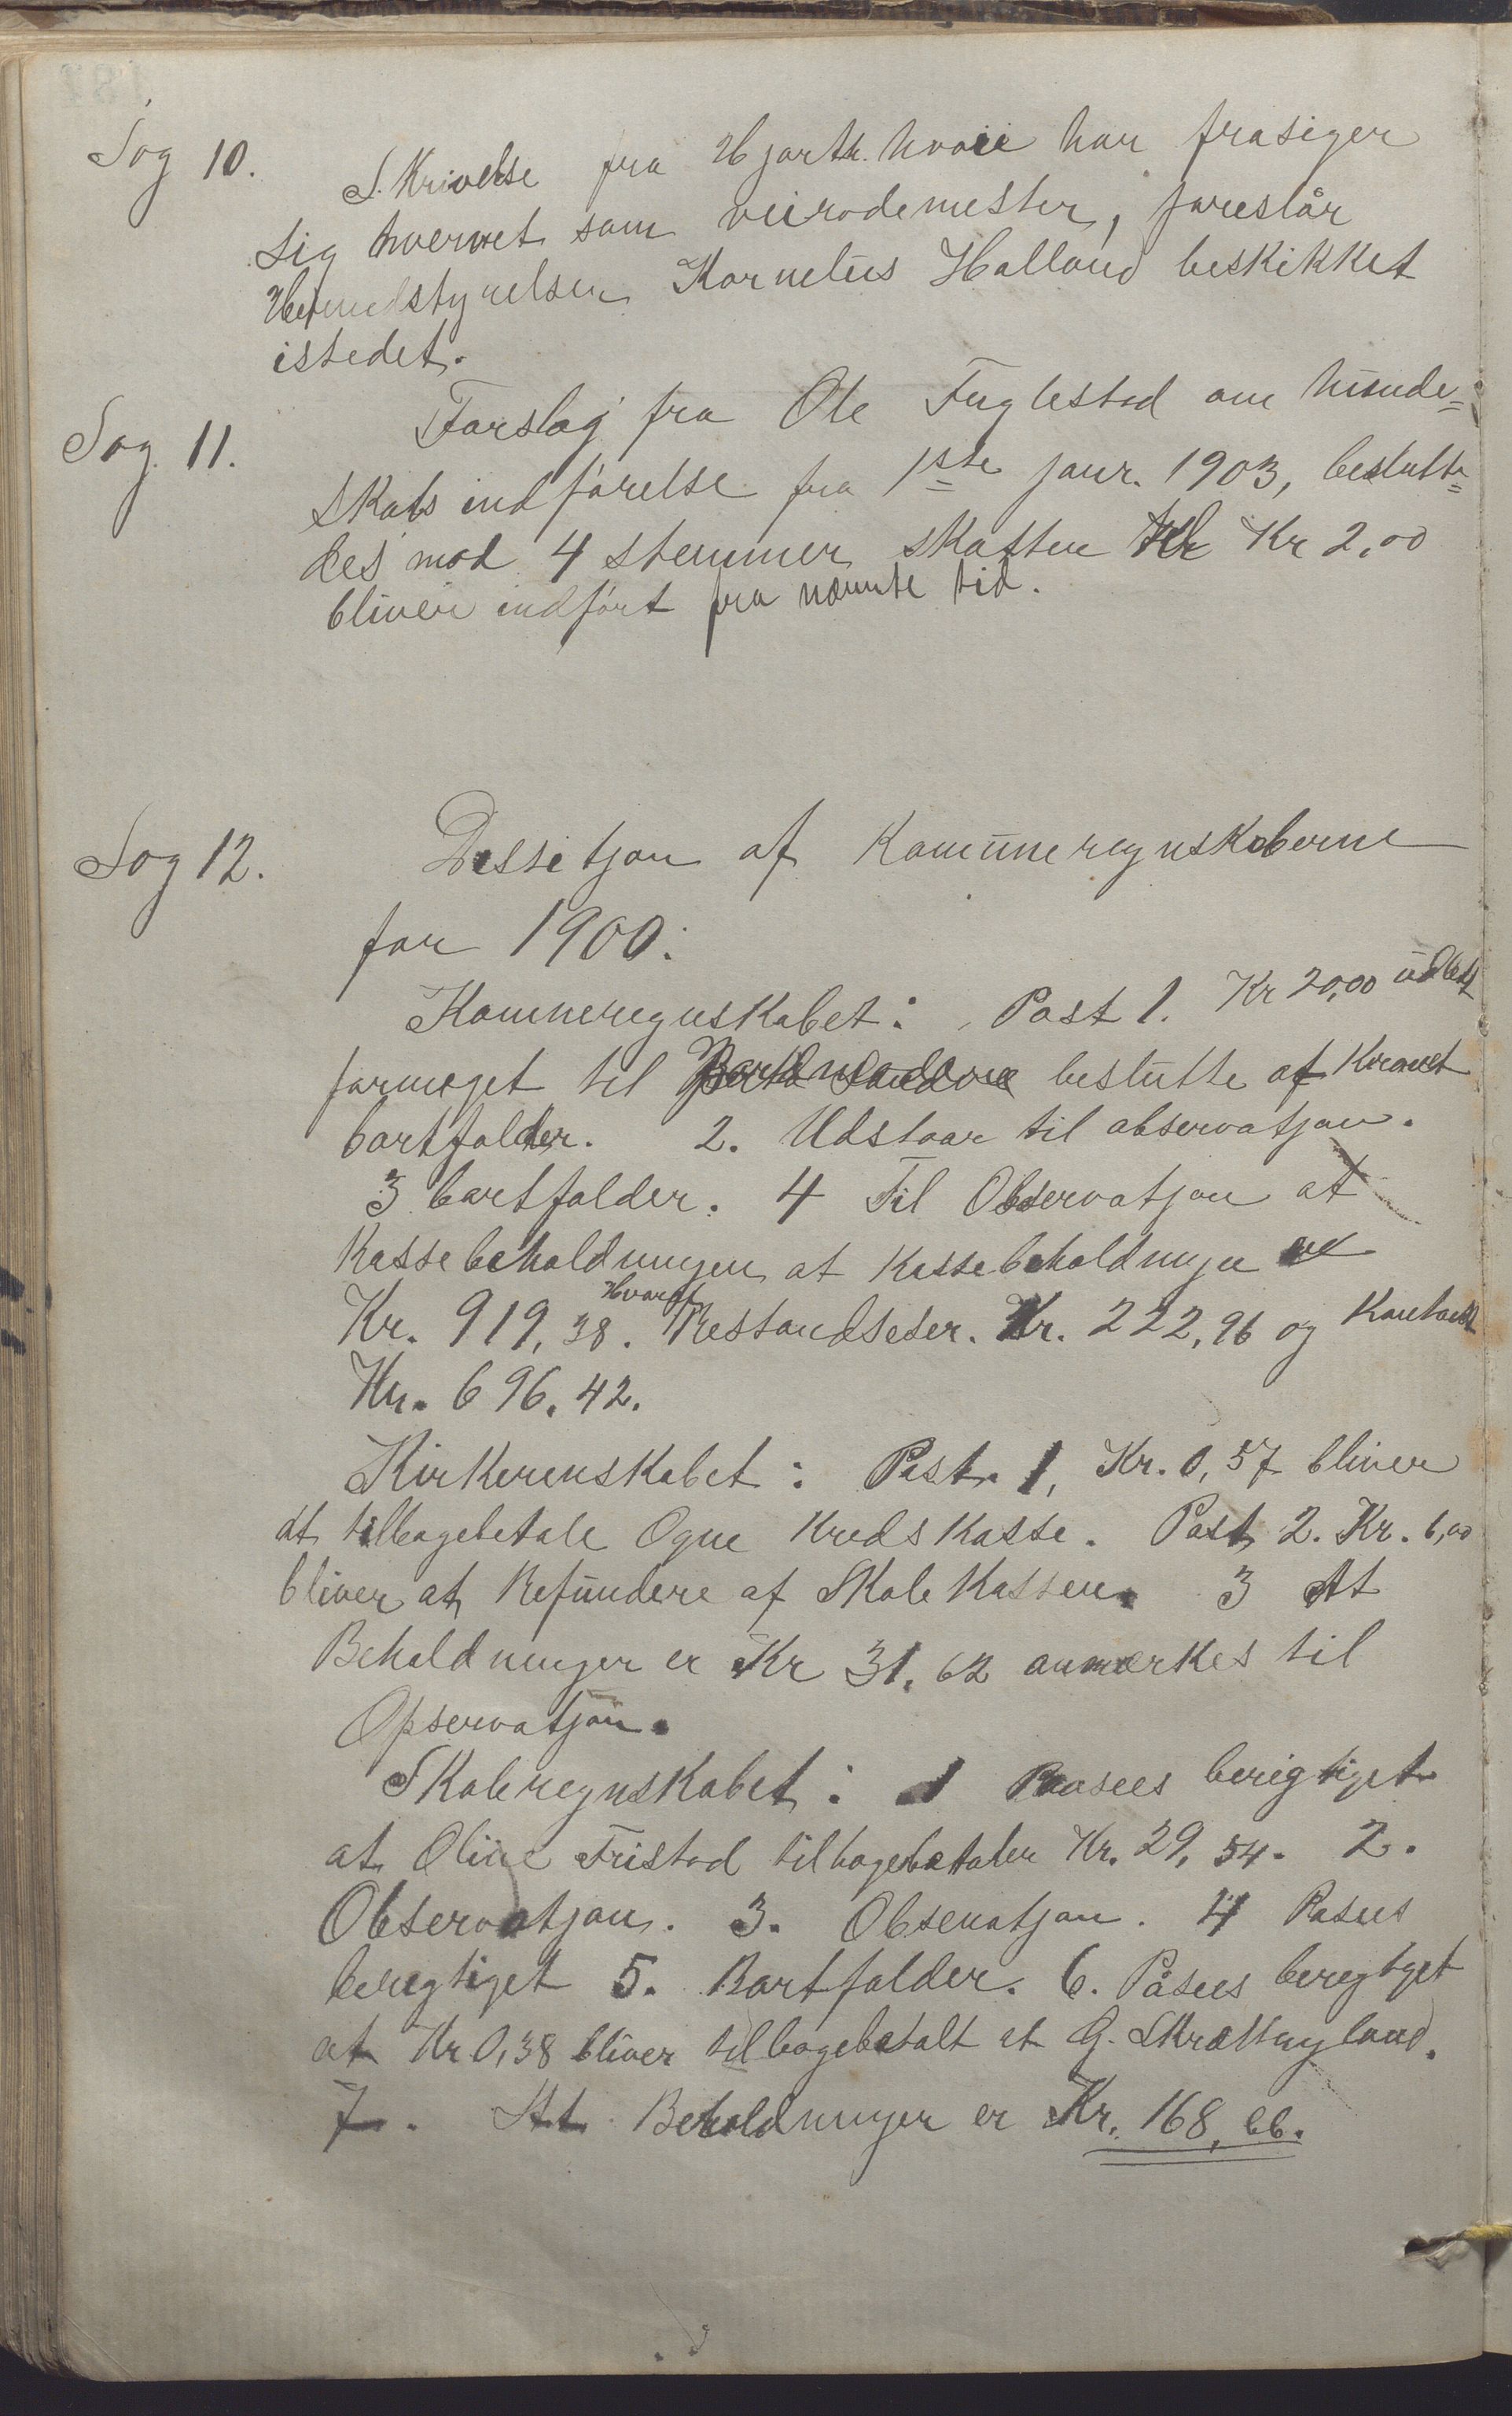 Sag 10. Skrivelse fra Hjarth. hvori han frasiger
sig hvervet som veirodemester, foreslår
Herredstyrelsen Kornelius Holland beskikket
istedet.
Sag. 11. Forslag fra Ole Fuglestad om hunde=
skats indförelse fra 1ste janr. 1903, beslutte=
des mod 4 stemmer skatten Kr 2,00
bliver indfört fra nævnte tid.
Sag 12. Dessitjon af Komüneregnskaberne
for 1900:
Komneregnskabet: Post 1. Kr 20,00 üdbet
formeget til beslutte af
bortfalder. 2. Udstaar til observatjon.
3 bortfalder. 4 Til Observatjon at
Kassebeholdningen at Kassebeholdningen
Kr. 919,38. Hvoraf Restandseser. Kr. 222,96 og Kontant
Kr. 696.42.
Kirkerenskabet: Post. 1, Kr. 0,57 bliver
at tilbagebetale Ogne Kredskasse. Post 2. Kr. 6,00
bliver at Refündere af Skolekassen. 3 At
Beholdninger er Kr 31,62 anmærkes til
Opservatjon.
Skoleregnskabet: 1 Passus berigtiget
at Oline Tristad tilbagebetaler Kr. 29,54. 2.
Observatjon. 3. Obsenatjon. 4 Pasus
berigtiget 5. Bortfalder. 6. Påsus beregtget
at Kr 0,38 bliver tilbagebetalt at G. Skrættingland.
7. At Beholdninger er Kr. 168,66.